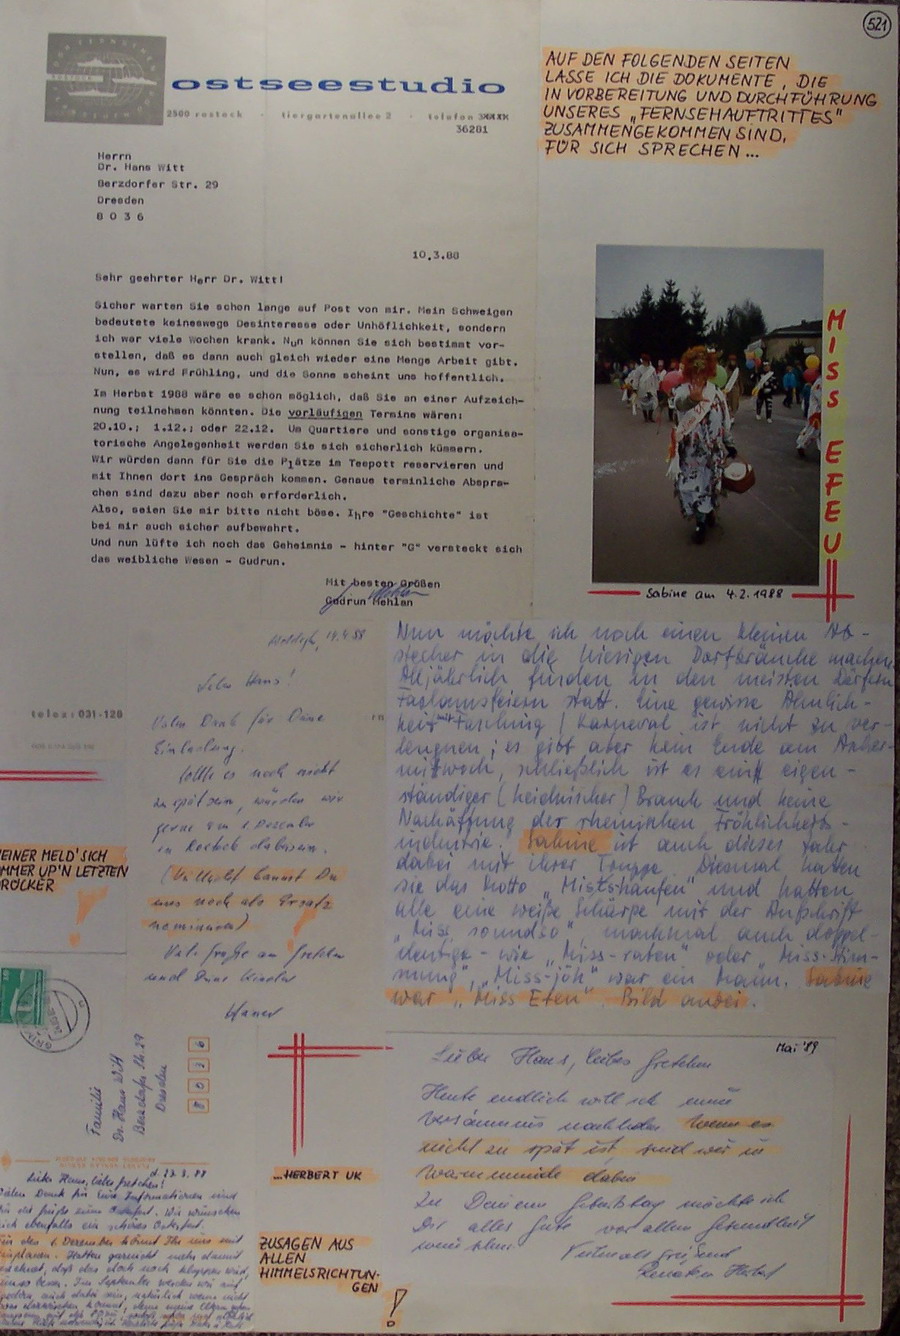 521
ostseestudio
ROSTOCK
2500 rostock · tiergartenallee 2 · telefon
36281
AUF DEN FOLGENDEN SEITEN
LASSE ICH DIE DOKUMENTE, DIE
IN VORBEREITUNG UND DURCHFÜHRUNG
UNSERES „FERNSEHAUFTRITTES"
ZUSAMMENGEKOMMEN SIND,
FÜR SICH SPRECHEN ...
Herrn
Dr. Hans Witt
Berzdorfer Str. 29
Dresden
8 0 3 6
10.3.88
Sehr geehrter Herr Dr. Witt!
Sicher warten Sie schon lange auf Post von mir. Mein Schweigen
bedeutete keineswegs Desinteresse oder Unhöflichkeit, sondern
ich war viele Wochen krank. Nun können Sie sich bestimmt vor-
stellen, daß es dann auch gleich wieder eine Menge Arbeit gibt.
Nun, es wird Frühling, und die Sonne scheint uns hoffentlich.
Im Herbst 1988 wäre es schon möglich, daß Sie an einer Aufzeich-
nung teilnehmen könnten. Die vorläufigen Termine wären:
20.10.; 1.12.; oder 22.12. Um Quartiere und sonstige organisa-
torische Angelegenheit werden Sie sich sicherlich kümmern.
Wir würden dann für Sie die Plätze im Teepott reservieren und
mit Ihnen dort ins Gespräch kommen. Genaue terminliche Abspra-
chen sind dazu aber noch erforderlich.
Also, seien Sie mir bitte nicht böse. Ihre "Geschichte" ist
bei mir auch sicher aufbewahrt.
Und nun lüfte ich noch das Geheimnis - hinter "G" versteckt sich
das weibliche Wesen - Gudrun.
Mit besten Grüßen
Gudrun Mehlan
telex: 031-120
MISS EFEU
Sabine am 4.2.1988
19.4.88
Lieber Hans!
Vielen Dank für Deine
Einladung.
Sollte es noch nicht
zu spät sein, würden wir
gerne am 1. Dezember
in Rostock dabeisein.
(Vielleicht kannst Du
uns noch als Ersatz
nominieren)
Viele Grüße an Gretchen
und Deine Kinder
Nun möchte ich noch einen kleinen Ab-
stecher in die hiesigen Dorfbräuche machen.
Alljährlich finden in den meisten Dörfern
Faslamsfeiern statt. Eine gewisse Ähnlich-
keit mit Fasching / Karneval ist nicht zu ver-
leugnen; es gibt aber kein Ende am Ascher-
mittwoch, schließlich ist es ein eigen-
ständiger (heidnischer) Brauch und keine
Nachäffung der rheinischen Fröhlichkeits-
industrie. Sabine ist auch dieses Jahr
dabei mit ihrer Truppe. Diesmal hatten
sie das Motto „Miststhaufen" und hatten
alle eine weiße Schärpe mit der Aufschrift
„Miss soundso", manchmal auch doppel-
deutige - wie „Miss-raten" oder „Miss-Stim-
mung", „Miss-jöh" war ein Mann. Sabine
war „Miss Efeu". Bild anbei.
EINER MELD' SICH
MMER UP'N LETZTEN
RÖCKER
!
Familie
Dr. Hans Witt
Berzdorfer Str. 29
Dresden
8036
d. 23.3.88
Liebe Hans, liebe Gretchen!
Vielen Dank für Eure Informationen und
die Grüße zum Osterfest. Wir wünschen
Euch ebenfalls ein schönes Osterfest.
Für den 1. Dezember könnt Ihr uns mit
einplanen. Hatten garnicht mehr damit
gerechnet, daß das doch noch klappen wird,
umso besser. Im September werden wir auf
...HERBERT UK
ZUSAGEN AUS
ALLEN
HIMMELSRICHTUN-
GEN
!
Mai '89
Lieber Hans, liebes Gretchen
Heute endlich will ich mein
Versäumnis nachholen. Wenn es
nicht zu spät ist, sind wir in
Warnemünde dabei
Zu Deinem Geburtstag möchte ich
Dir alles Gute vor allem Gesundheit
wünschen.
Vielmals grüßend